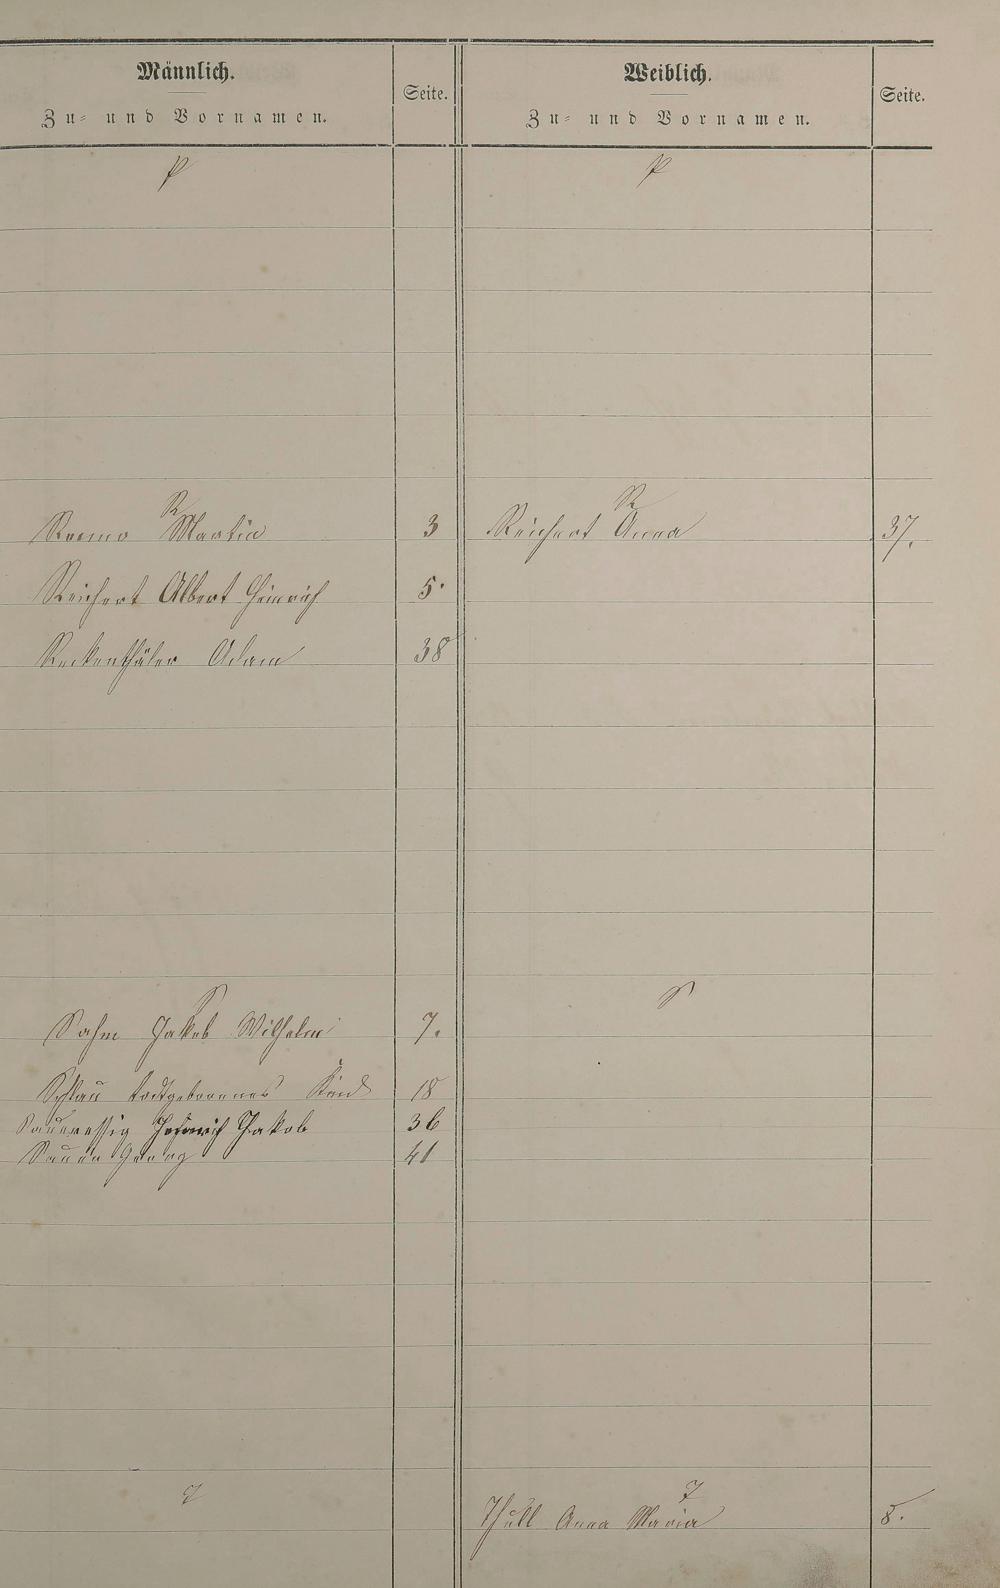 Männlich. Seite. Weiblich. Seite.
Zu- und Vornamen. Zu- und Vornamen.
P P
R R
Martin 3 Reichert Anna 37.
Reichert Albert Heinrich 5.
Reckenthäler Adam 38
S S
Sahm Jakob Wilhelm 7.
Schlau todtgeborenes Kind 18
Saueressig Jakob 36
Sauer Georg 41
T T
Thull Anna Maria 8.